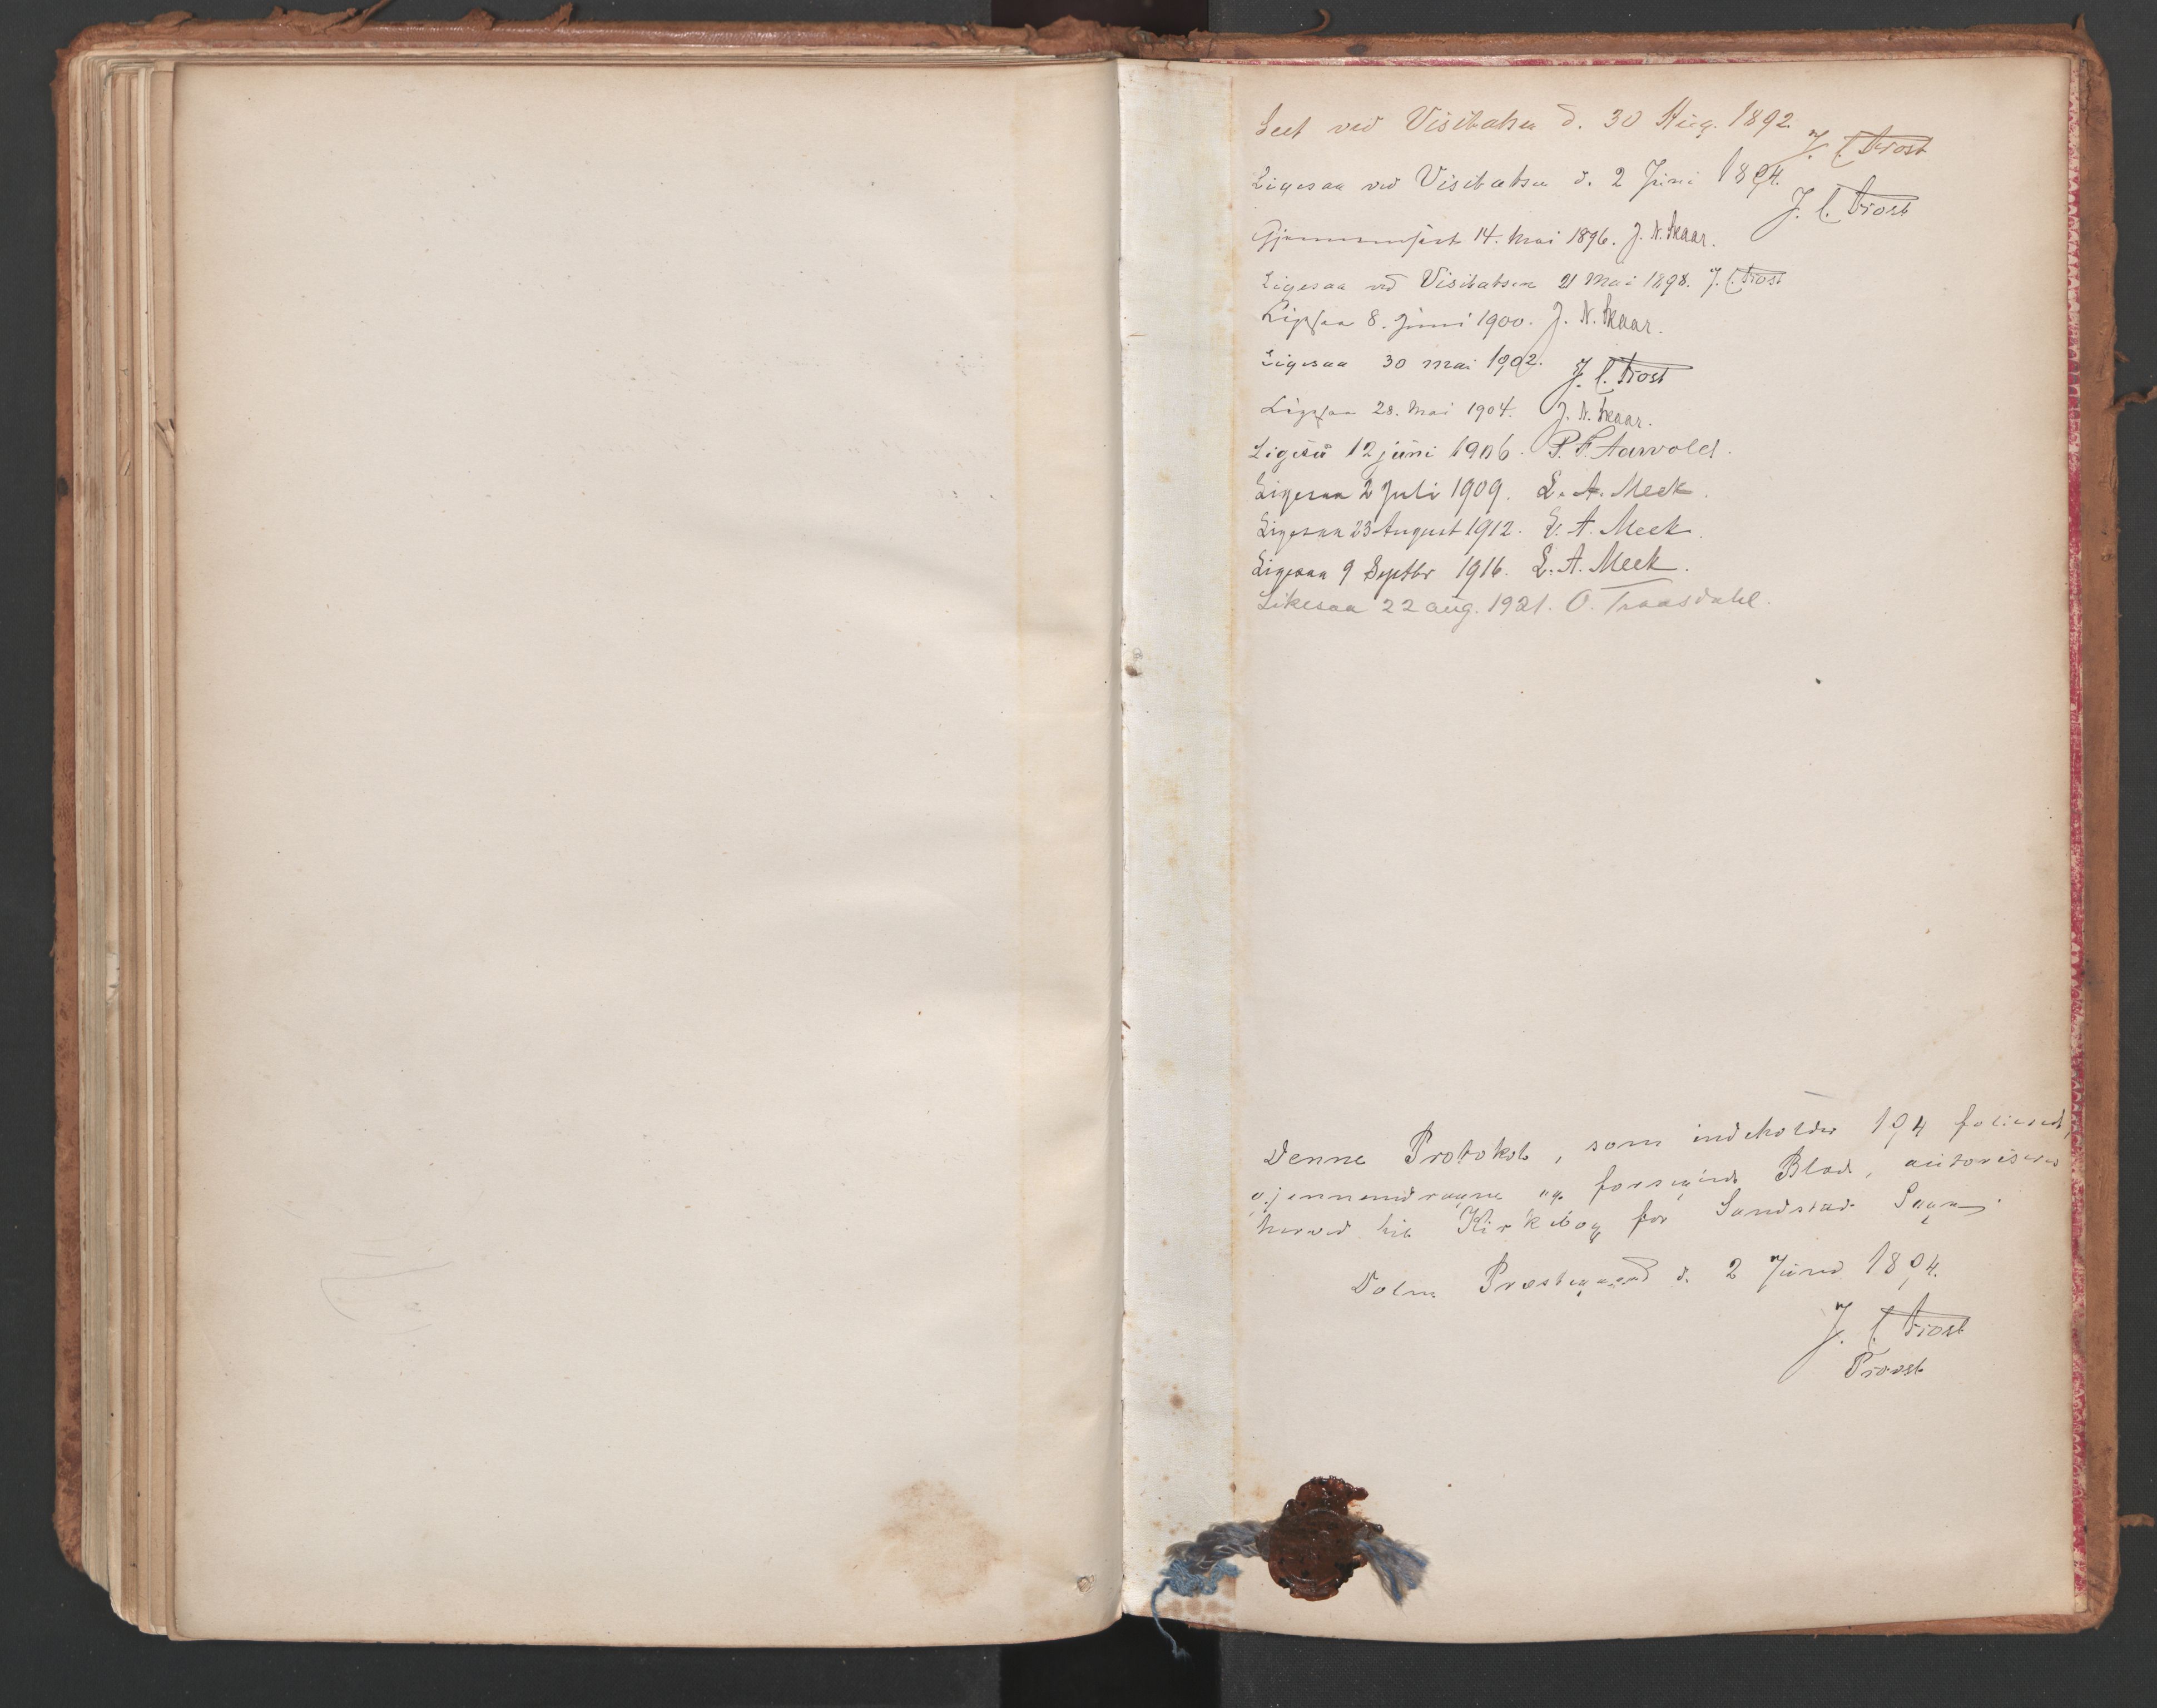 Seet ved Visitatsen d. 30 Aug. 1892. J. C. Trost
Ligesaa ved Visitatsen d. 2 Juni 1894. J. C. Trost
Gjennemseet 14. Mai 1896. J. N. Skaar.
Ligesaa ved Visitatsen 21 Mai 1898. J. C. Trost
Ligesaa 8. Juni 1900. J. N. Skaar.
Ligesaa 30 Mai 1902. J. C. Trost
Ligesaa 28. Mai 1904. J. N. Skaar.
Ligeså 12 juni 1906. P. F. Aarvold.
Ligesaa 2 Juli 1909. L. A. Meek.
Ligesaa 23 August 1912. L. A. Meek.
Ligesaa 9 Septbr 1916. L. A. Meek.
Likesaa 22 aug. 1921. O. Traasdahl.
Denne Protokol, som indeholder 194 folierede,
gjennemdragne og forseglede Blade, autoriseres
herved til Kirkebog for Sandstad Sogn.
Dolm Præstegaard d. 2 Juni 1894.
J. C. Trost
Provst